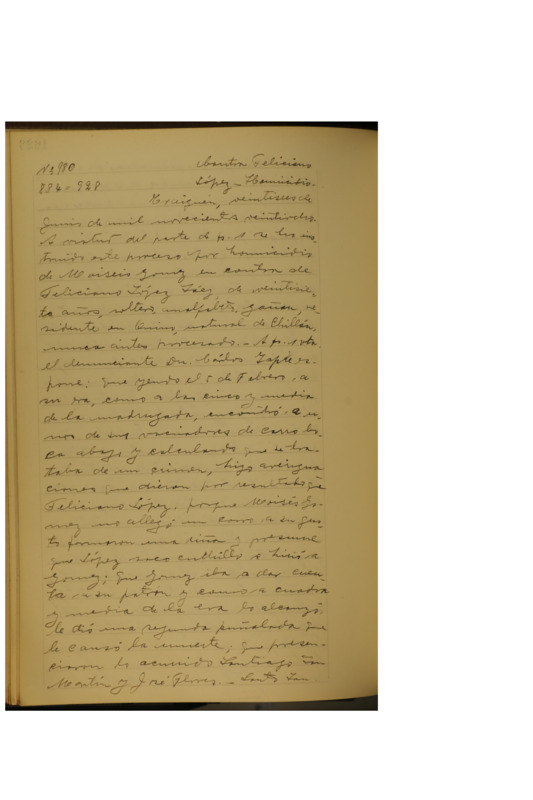 Nº 980 Contra Feliciano
884 = 928 López - Homicidio.
Traiguén, veintiseis de
Junio de mil novecientos veintidos.
A virtud del parte de fs. 1 se ha ins-
truido este proceso por homicidio
de Moiseis Gomez en contra de
Feliciano López Sáez, de veintisie-
te años, soltero, analfabeto, gañan, re-
sidente en Quino, natural de Chillán,
nunca antes procesado. - A fs. 1 vta
el denunciante Dn. Cárlos ex-
pone: que yendo el 5 de Febrero, a
su era, como a las cinco y media
de la madrugada, encontró a u-
no de sus vaciadores de carro bo-
ca abajo y calculando que se tra-
taba de un crimen, hizo averigua
ciones que dieron por resultado que
Feliciano López, porque Moisés Go-
mez no allegó un carro a su gus-
to formaron una riña y presume
que López sacó cuchillo e hirió a
Gomez; que Gomez iba a dar cuen-
ta a su patrón y como a cuadra
y media de la era lo alcanzó
le dió una segunda puñalada que
le causó la muerte; que presen-
ciaron lo acurrido Santiago San
Martín y José Flores. - Santo San